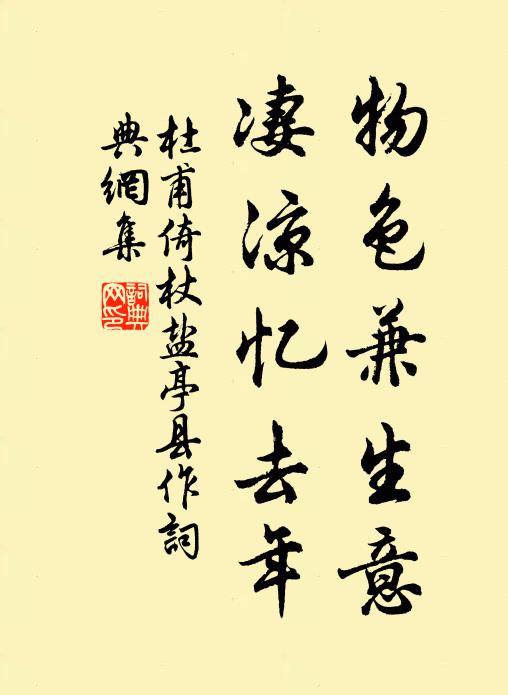 物色兼生意
凄涼忆去年
杜甫倚杖盐亭县作詞
典網集
詞典
网印